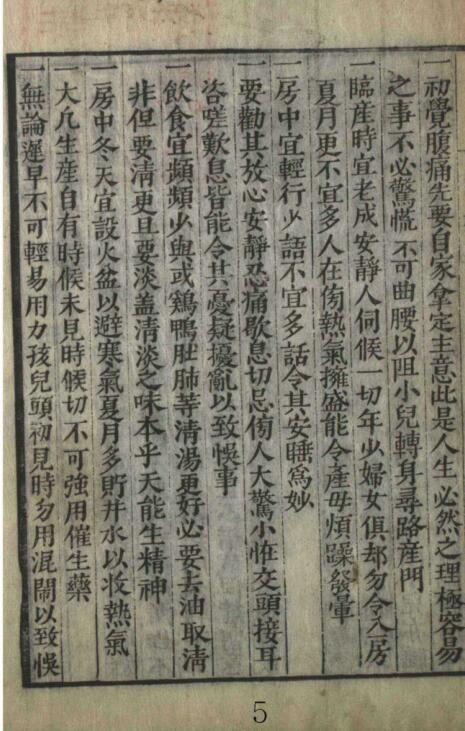 一初覺腹痛先要自家拿定主意此是人生必然之理極容易
之事不必驚慌不可曲腰以阻小兒轉身尋路産門
一臨産時宜老成安靜人伺候一切年少婦女俱却勿令入房
夏月更不宜多人在傍熱氣擁盛能令產母煩躁發暈
一房中宜輕行少語不宜多話令其安睡爲妙
一要勸其放心安靜忍痛歇息切忌傍人大驚小恠交頭接耳
咨嗟歎息皆能令其憂疑擾亂以致悞事
一飲食宜頻頻少與或鶏鴨肚肺等清湯更好必要去油取清
非但要清更且要淡盖清淡之味本乎天能生精神
一房中冬天宜設火盆以避寒氣夏月多貯井水以收熱氣
一大凡生産自有時候未見時候切不可強用催生藥
一無論遲早不可輕易用力孩兒頭初見時勿用混閙以致悞
5